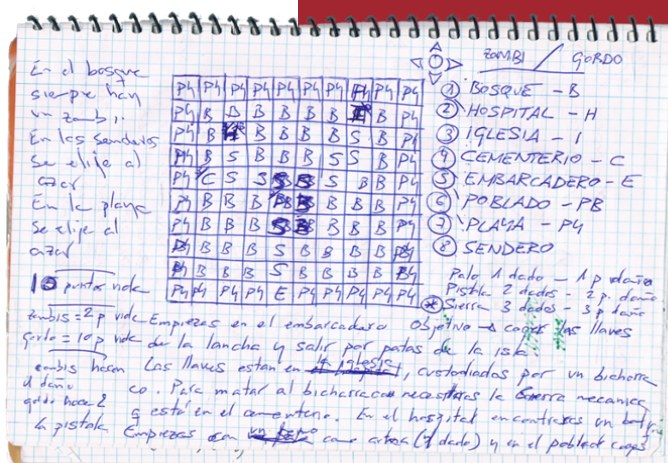 ZOMBI / GORDO
En el bosque
siempre hay
un zombi.
En los senderos
se elije al
azar
En la playa
se elije al
azar
10 puntos vida
zombis = 2 p vida
gordo = 10 p vida
zombis hacen
1 daño
gordo hace 2
P4 P4 P4 P4 P4 P4 P4 P4 P4
P4 B B B B B B B P4
P4 B B B B B B P4
P4 B S B B B S S B P4
P4 C S S S B B P4
P4 B B B B B B P4
P4 B B B S B B P4
P4 B B B S B B B B P4
P4 B B B S B B B B P4
P4 P4 P4 P4 E P4 P4 P4 P4
① BOSQUE - B
② HOSPITAL - H
③ IGLESIA - I
④ CEMENTERIO - C
⑤ EMBARCADERO - E
⑥ POBLADO - PB
⑦ PLAYA - P4
⑧ SENDERO
Palo 1 dado - 1 p daño
Pistola 2 dados - 2 p. daño
* Sierra 3 dados - 3 p daño
Empiezas en el embarcadero Objetivo → coger las llaves
de la lancha y salir por patas de la isla.
Las llaves estan en la iglesia, custodiados por un bicharra
co. Para matar al bicharraco necesitaras la sierra mecanica
q está en el cementerio. En el hospital encontraras un
la pistola Empiezas con como arma (1 dado) y en el poblado coges